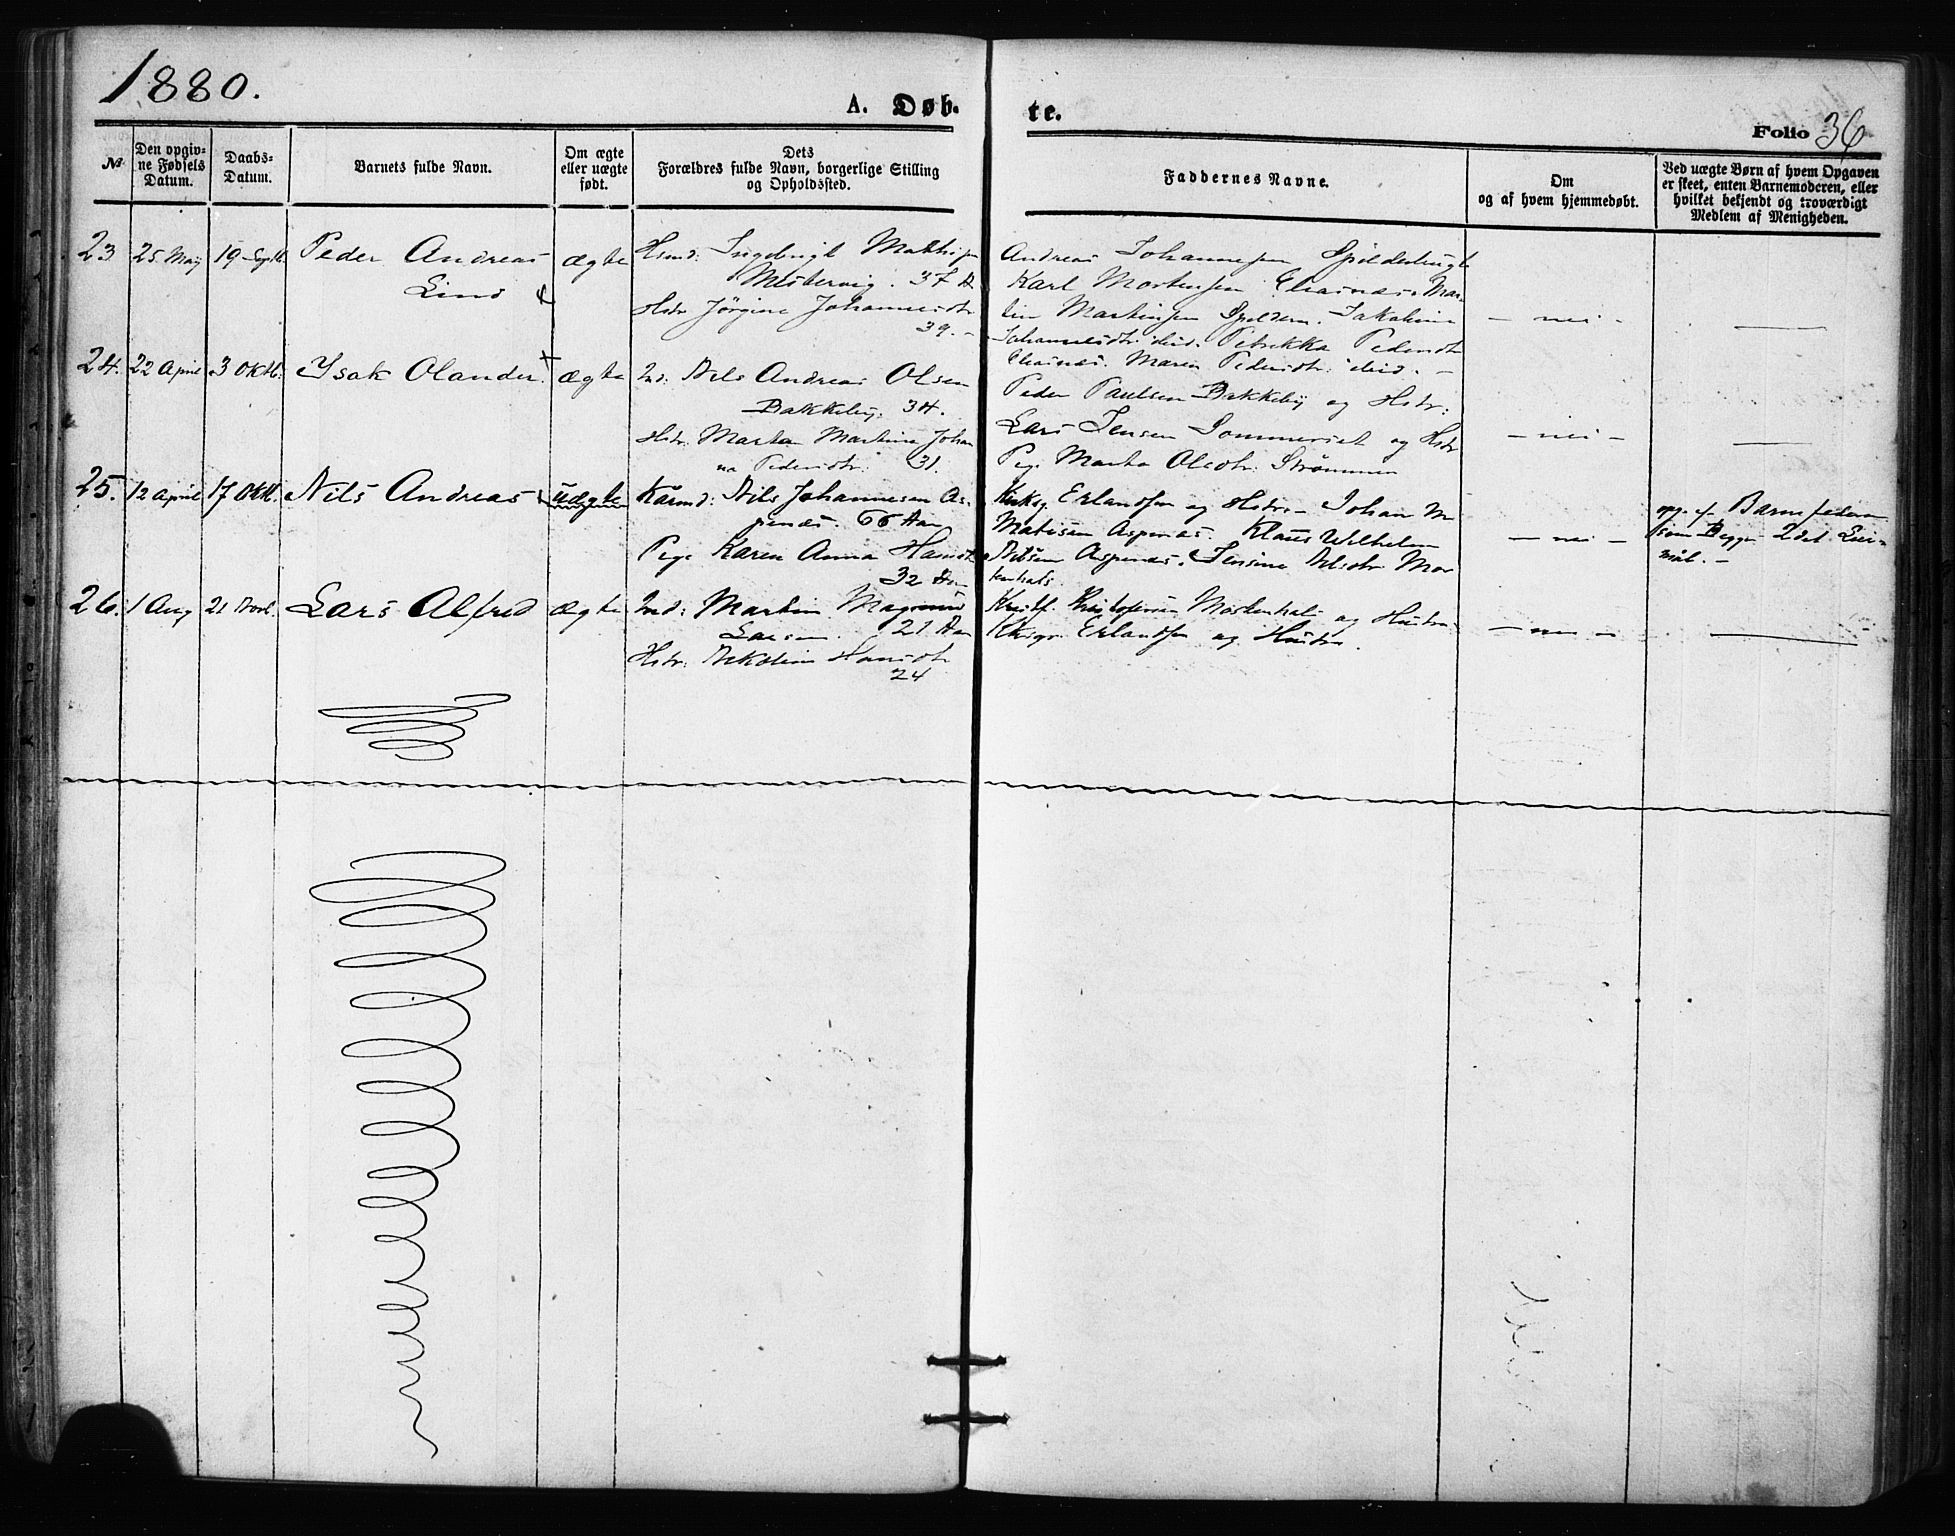 1880.
A. Døb-
te.
Folio 36
№
Den opgiv-
ne Fødsels
Datum.
Daabs-
Datum.
Barnets fulde Navn.
Om ægte
eller uægte
født.
Dets
Forældres fulde Navn, borgerlige Stilling
og Opholdssted.
Faddernes Navne.
Om
og af hvem hjemmedøbt.
Ved uægte Børn af hvem Opgaven
er skeet, enten Barnemoderen, eller
hvilket bekjendt og troværdigt
Medlem af Menigheden.
23 25 Maj 19 Septb. Peder Andreas ægte
Lind
Ingebrigt
Mestervig. 37 A
Hstr Jørgine Johannesdtr
39. -
Andreas Johannesen Spilderbugt
Karl Mortensen Mar-
tin Martinsen
Johannesdtr Petrikka Pedersdtr
Maren Pedersdtr: ibid. -
- nei -
24. 22 April 3 Oktb. Ysak Olander. ægte
Ind: Nils Andreas Olsen
Bakkeby. 34.
Hstr. Marta Martine Johan
na Pedersdtr. 31.
Peder Paulsen Bakkeby og Hstr:
Lars Jensen Sommerset og Hstr
Pige Marta Olsdtr. Strømmen
- nei -
25. 12 April 17 Oktb. Nils Andreas uægte
Nils Johannesen As-
penæs. 66 Aar
Pige Karen Anna Hansdtr
32 Aar
Erlandsen og Hstr. - Johan M
Matisen Aspenæs. Klaus Wilhelm
Nilsen Aspenæs. Jensine Nilsdtr Mor
tenhals.
- nei -
opg. af Barnefaderen
som Begges 2det Lei-
mål. -
26. 1 Aug 21 Novb. Lars Alfred ægte
Ind: Martin Magnus
Larsen. 21 Aar
Hstr: Nikoline Hansdtr
24
Kristf. Kristofersen Mortenhals og Hustru
Erlandsen og Hustru.
- nei -